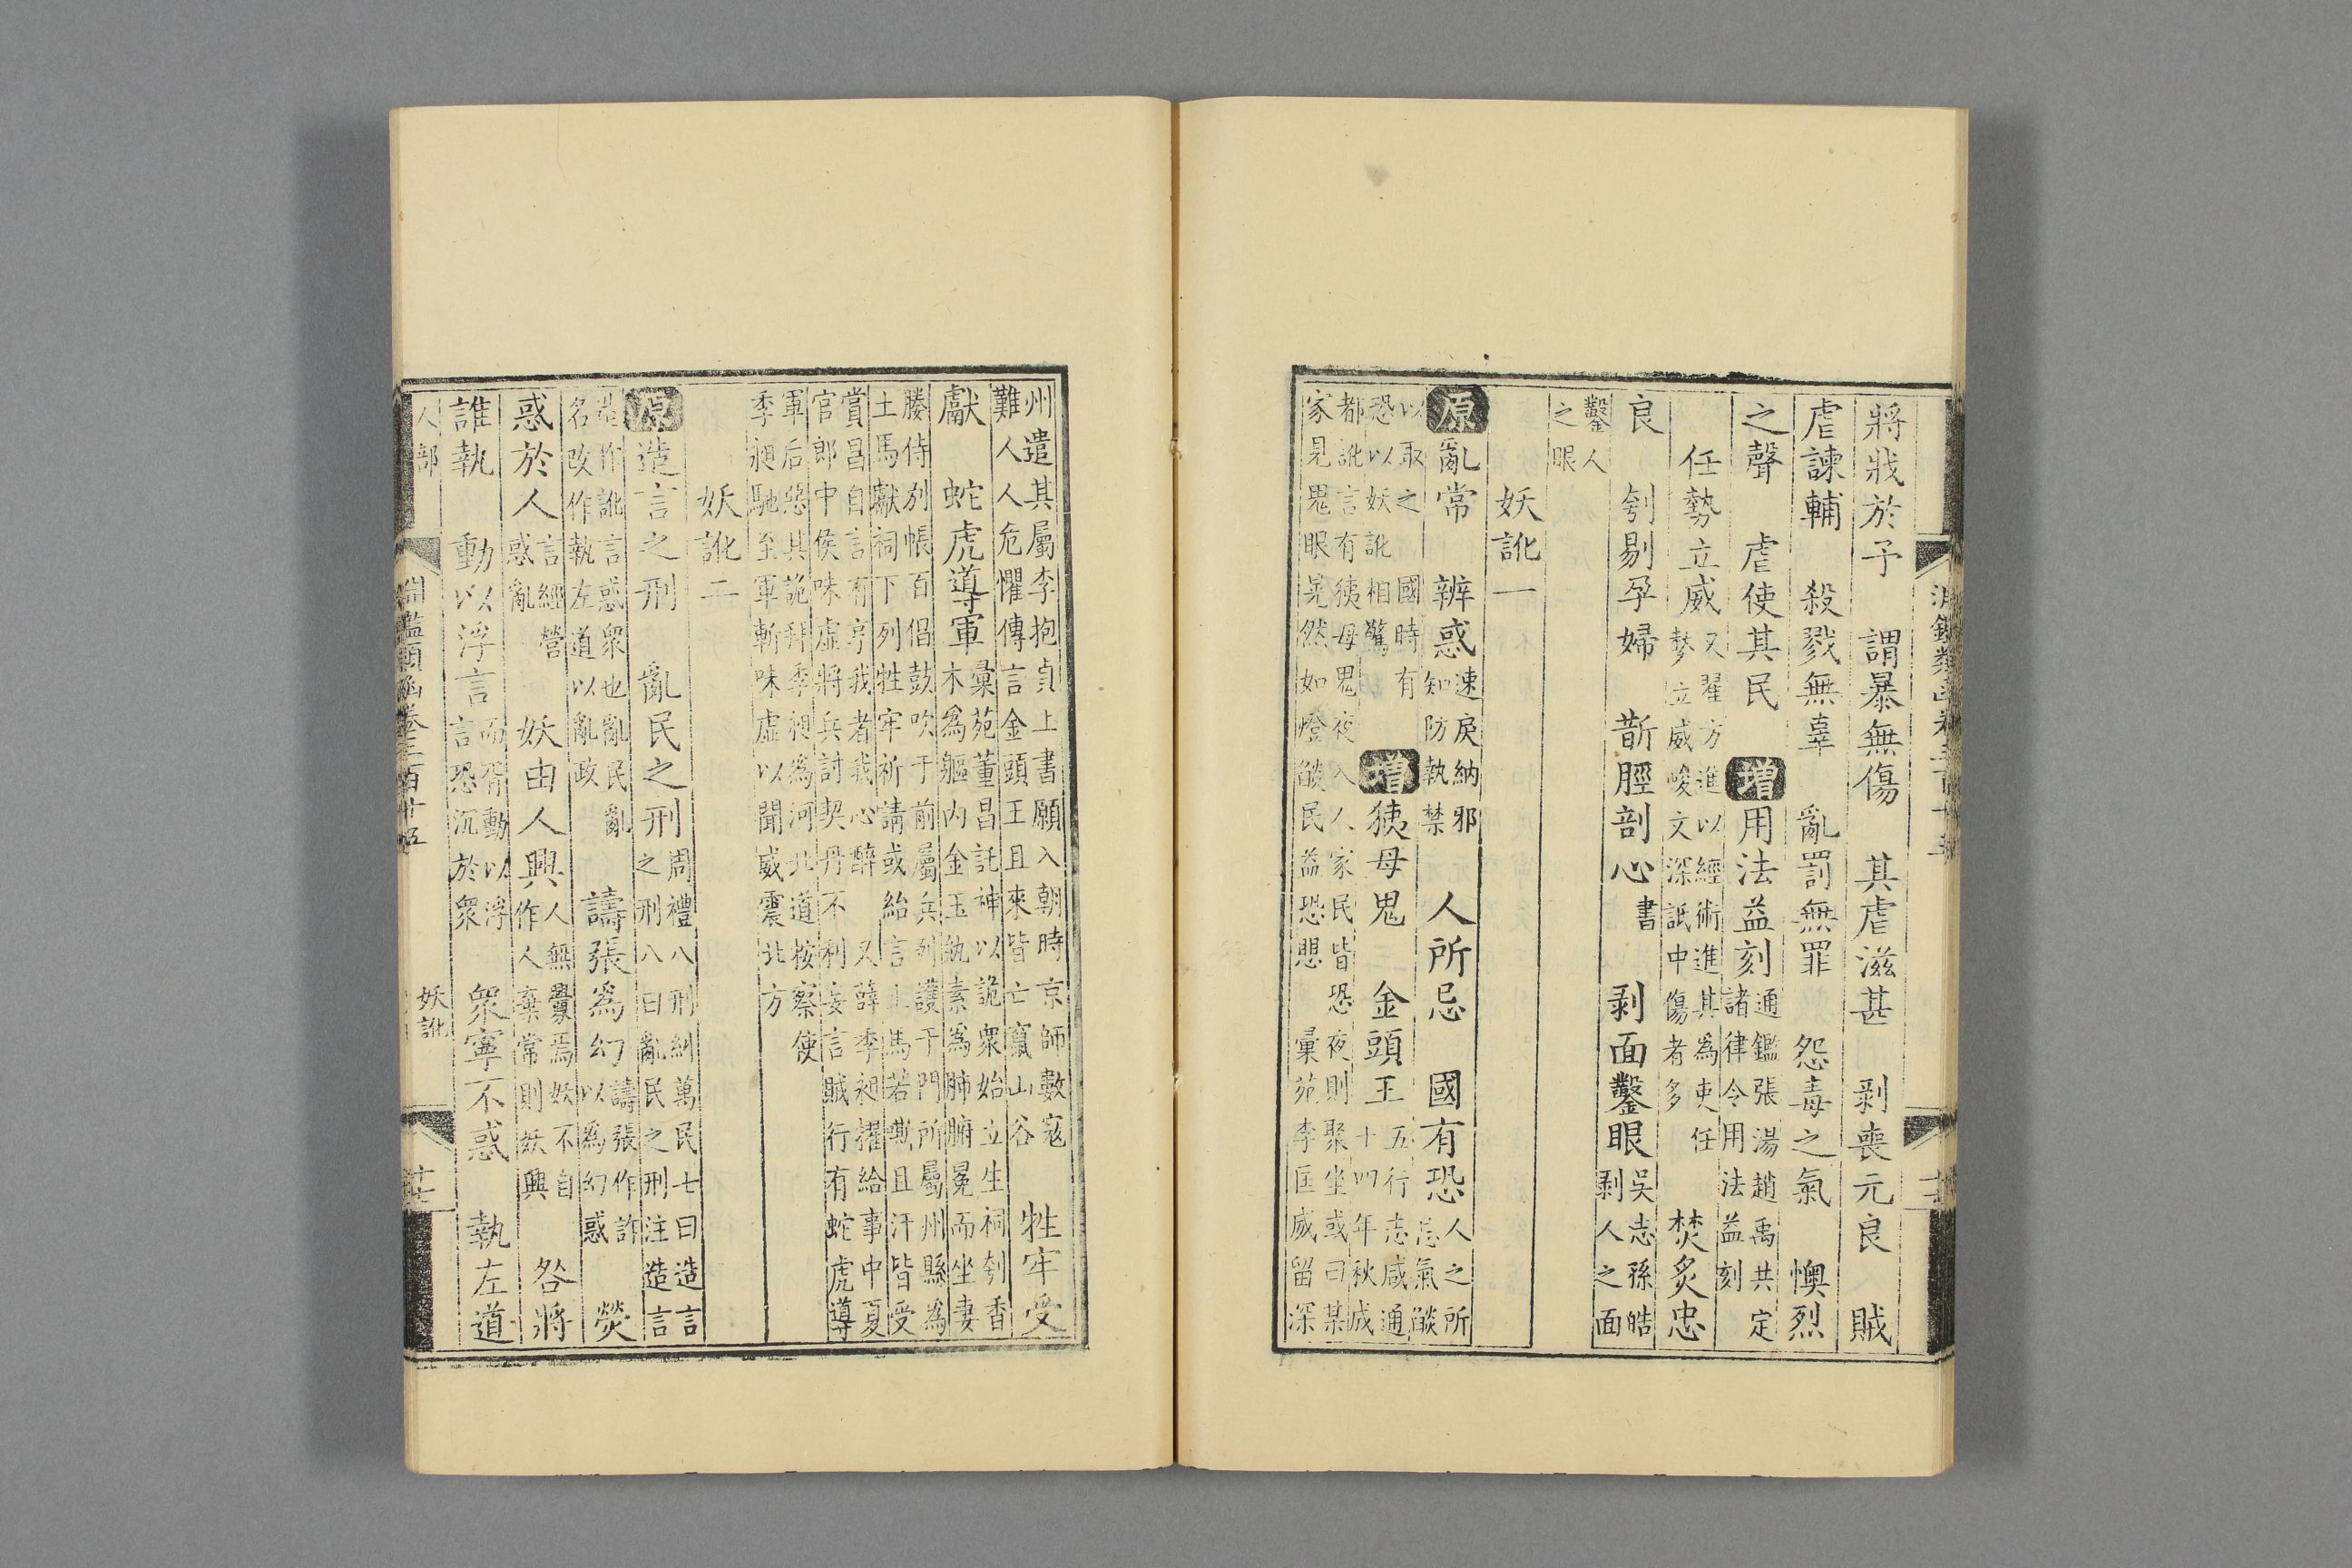 將戕於予 謂暴無傷 其虐滋甚 剥喪元良 賊
虐諫輔 殺戮無辜 亂罰無罪 怨毒之氣 懊烈
之聲 虐使其民 增用法益刻 通鑑張湯趙禹共定諸律令用法益刻
任勢立威 又翟方進以經術進其為吏任勢立威峻文深詆中傷者多 焚炙忠
良 刳剔孕婦 斮脛剖心 書 剥面鑿眼 吳志孫皓剥人之面
鑿人之眼
妖訛一
原亂常 辨惑 速戾納邪知防執禁 人所忌 國有恐 人之所忌氣燄
以取之 國時有恐以妖訛相驚 增㹭母鬼 金頭王 五行志咸通十四年秋成
都訛言有㹭母鬼夜入人家民皆恐夜則聚坐或曰某家見鬼眼晃然如燈燄民益恐 彙苑李匡威留深
州遣其屬李抱貞上書願入朝時京師數寇難人人危懼傳言金頭王且來皆亡竄山谷 牲牢受
獻 蛇虎導軍 彙苑董昌託神以詭衆始立生祠刳香木為軀内金玉紈素為肺腑冕而坐妻
媵侍别帳百倡鼓吹于前屬兵列護于門所屬州縣為土馬獻祠下列牲牢祈請或紿言土馬若嘶且汗皆受
賞昌自言有享我者我心醉 又薛季昶擢給事中夏官郎中侯味虛將兵討契丹不利妄言賊行有蛇虎導
軍后惡其詭拜季昶為河北道按察使季昶馳至軍斬味虛以聞威震北方
妖訛二
原造言之刑 亂民之刑 周禮八刑糾萬民七曰造言之刑八曰亂民之刑注造言
造作訛言惑衆也亂民亂名改作執左道以亂政 譸張為幻 譸張作詐以為幻惑 熒
惑於人 言經營惑亂 妖由人興 人無釁焉妖不自作人棄常則妖興 咎將
誰執 動以浮言 而胥動以浮言恐沉於衆 衆寧不惑 執左道
人部 淵鑑類函卷三百十五 妖訛